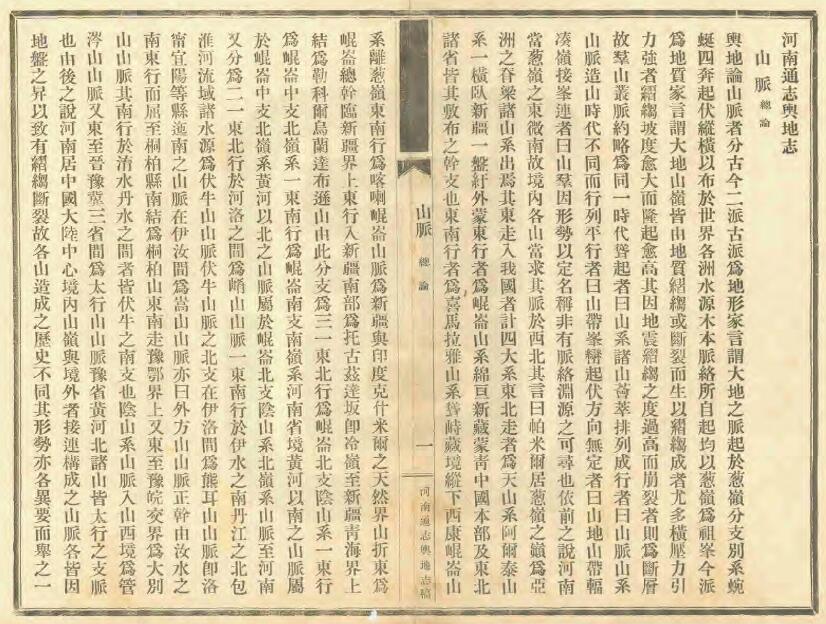 河南通志輿地志
山脈總論
輿地論山脈者分古今二派古派爲地形家言謂大地之脈起於葱嶺分支別系蜿
蜒四奔起伏縱橫以布於世界各洲水源木本脈絡所自起均以葱嶺爲祖峯今派
爲地質家言謂大地山嶺皆由地質縐縐或斷裂而生以縐縐成者尤多橫壓力引
力強者縐縐坡度愈大而隆起愈高其因地震縐縐之度過高而崩裂者則爲斷層
故羣山叢脈約略爲同一時代聳起者曰山系諸山薈萃排列成行者曰山脈山系
山脈造山時代不同而行列平行者曰山帶峯巒起伏方向無定者曰山地山帶輻
湊嶺接峯連者曰山羣因形勢以定名稱非有脈絡淵源之可尋也依前之說河南
當葱嶺之東微南故境內各山當求其脈於西北其言曰帕米爾居葱嶺之巔爲亞
洲之脊梁諸山系出焉其東走入我國者計四大系東北走者爲天山系阿爾泰山
系一橫臥新疆一盤紆外蒙東行者爲崐崙山系綿亘新藏蒙青中國本部及東北
諸省皆其敷布之幹支也東南行者爲喜馬拉雅山系聳峙藏境縱下西康崐崙山
山脈
總論
一
河南通志輿地志稿
系離葱嶺東南行爲喀喇崐崙山脈爲新疆與印度克什米爾之天然界山折東爲
崐崙總幹臨新疆界上東行入新疆南部爲托古茲達坂卽冷嶺至新疆青海界上
結爲勒科爾烏蘭達布遜山由此分支爲三一東北行爲崐崙北支陰山系一東行
爲崐崙中支北嶺系一東南行爲崐崙南支南嶺系河南省境黃河以南之山脈屬
於崐崙中支北嶺系黃河以北之山脈屬於崐崙北支陰山系北嶺系山脈至河南
又分爲二一東北行於河洛之間爲崤山山脈一東南行於伊水之南丹江之北包
淮河流域諸水源爲伏牛山山脈伏牛山脈之北支在伊洛間爲熊耳山山脈卽洛
甯宜陽等縣迤南之山脈在伊汝間爲嵩山山脈亦曰外方山山脈正幹由汝水之
南東行而屈至桐柏縣南結爲桐柏山東南走豫鄂界上又東至豫皖交界爲大別
山山脈其南行於淯水丹水之間者皆伏牛之南支也陰山系山脈入山西境爲管
涔山山脈又東至晉豫冀三省間爲太行山山脈豫省黃河北諸山皆太行之支脈
也由後之說河南居中國大陸中心境內山嶺與境外者接連構成之山脈各皆因
地盤之昇以致有縐縐斷裂故各山造成之歷史不同其形勢亦各異要而舉之一